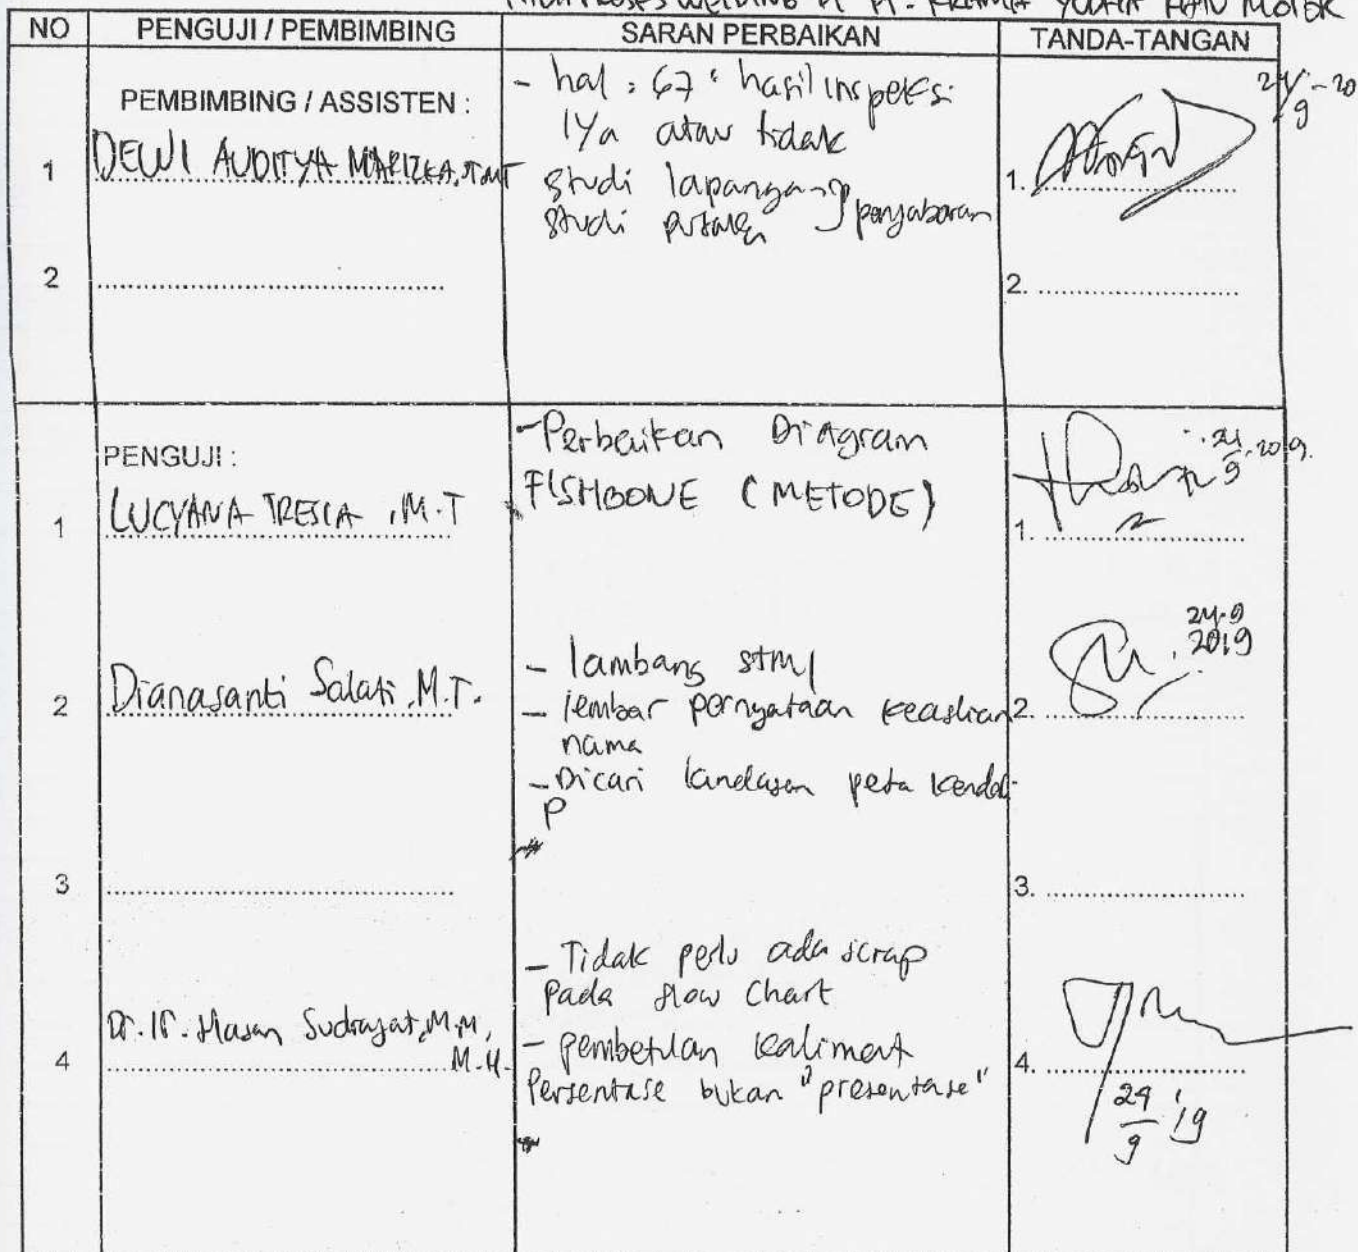 PROSES WELDING DI PT. KRAMA YUDHA RATU MOTOR
NO PENGUJI / PEMBIMBING SARAN PERBAIKAN TANDA-TANGAN
PEMBIMBING / ASSISTEN :
1 DEWI AUDITYA MARIZKA, ST, MT
- hal : 67 : hasil inspeksi
iya atau tidak
studi lapangan
studi pustaka } penjabaran
1.
24/9-20
2 ........................................
2. ........................
PENGUJI :
1 LUCYANA TRESIA , M.T
- Perbaikan Diagram
FISHBONE (METODE)
1.
24/9-2019.
2 Dianasanti Salati, M.T.
- lambang STMI
- lembar pernyataan keaslian
nama
- Dicari landasan peta kendali
P
2.
24-9
2019
3 ........................................
3. ........................
4 Dr. Ir. Hasan Sudrajat, M.M,
M.H.
- Tidak perlu ada scrap
pada flow chart
- pembetulan kalimat
Persentase bukan "presentase"
4.
24/9 '19